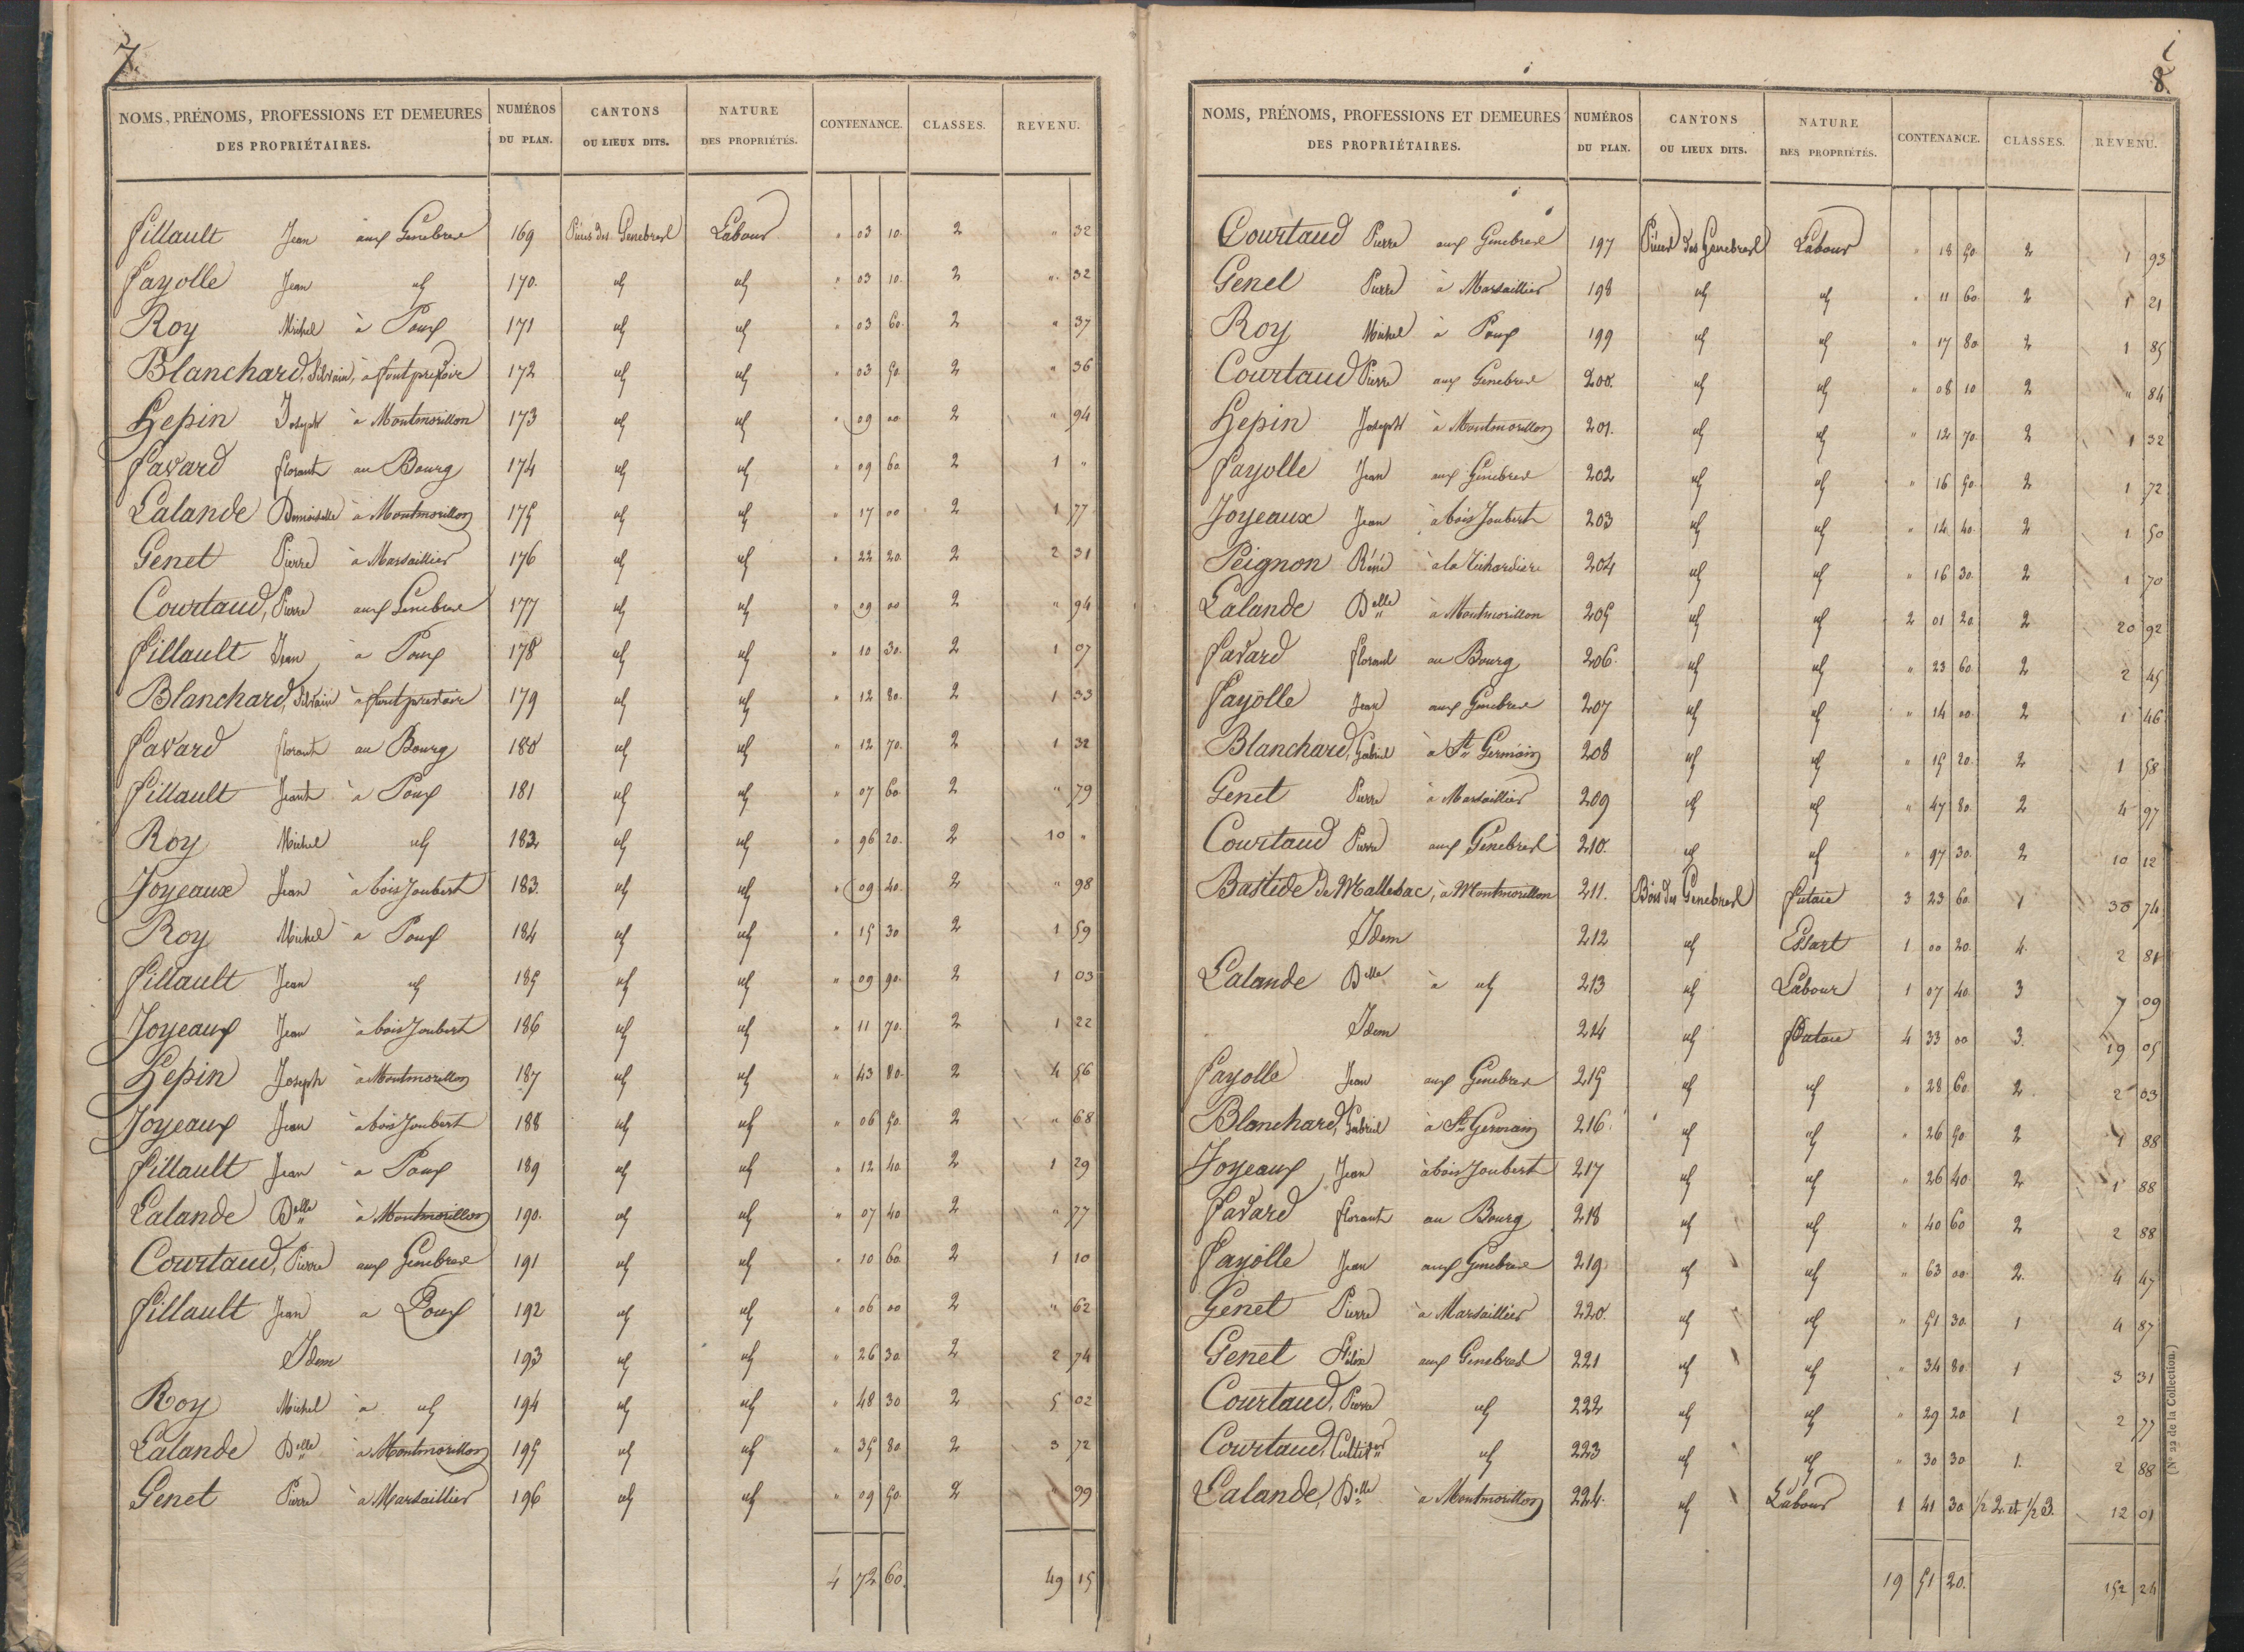 7.
NOMS, PRÉNOMS, PROFESSIONS ET DEMEURES DES PROPRIÉTAIRES. NUMÉROS DU PLAN. CANTONS OU LIEUX DITS. NATURE DES PROPRIÉTÉS. CONTENANCE. CLASSES. REVENU.
fillault Jean aux Genebres 169 Pièces des Genebres Labour " 03 10 2 " 32
fayolle Jean id 170. id id " 03 10. 2 " 32
Roy Michel à Poux 171 id id " 03 60. 2 " 37
Blanchard, Silvain, à 172 id id " 03 50 2 " 36
Lepin Joseph à Montmorillon 173 id id " 09 00 2 " 94
favard florant au Bourg 174 id id " 09 60 2 1 "
Lalande Demoiselle à Montmorillon 175 id id " 17 00 2 1 77
Genet Pierre à Marsaillier 176 id id " 22 20. 2 2 31
Courtaud, Pierre aux Genebres 177 id id " 09 00 2 " 94
fillault Jean à Poux 178 id id " 10 30. 2 1 07
Blanchard, Silvain à 179 id id " 12 80. 2 1 33
favard florant au Bourg 180 id id " 12 70. 2 1 32
fillault Jean à Poux 181 id id " 07 60 2 " 79
Roy Michel id 182 id id " 96 20. 2 10 "
Joyeaux Jean à bois Joubert 183. id id " 09 40. 2 " 98
Roy Michel à Poux 184 id id " 15 30 2 1 59
fillault Jean id 185 id id " 09 90. 2 1 03
Joyeaux Jean à bois Joubert 186 id id " 11 70. 2 1 22
Lepin Joseph à Montmorillon 187 id id " 43 80. 2 4 56
Joyeaux Jean à bois Joubert 188 id id " 06 50. 2 " 68
fillault Jean à Poux 189 id id " 12 40. 2 1 29
Lalande Delle à Montmorillon 190. id id " 07 40 2 " 77
Courtaud, Pierre aux Genebres 191 id id " 10 60. 2 1 10
fillault Jean à Poux 192 id id " 06 00 2 " 62
Idem 193 id id " 26 30. 2 2 74
Roy Michel à id 194 id id " 48 30 2 5 02
Lalande Delle à Montmorillon 195 id id " 35 80. 2 3 72
Genet Pierre à Marsaillier 196 id id " 09 50. 2 " 99
4 72 60. 49 15
8.
NOMS, PRÉNOMS, PROFESSIONS ET DEMEURES DES PROPRIÉTAIRES. NUMÉROS DU PLAN. CANTONS OU LIEUX DITS. NATURE DES PROPRIÉTÉS. CONTENANCE. CLASSES. REVENU.
Courtaud Pierre aux Genebres 197 Pièces des Genebres Labour " 18 50. 2 1 93
Genet Pierre à Marsaillier 198 id id " 11 60 2 1 21
Roy Michel à Poux 199 id id " 17 80 2 1 85
Courtaud Pierre aux Genebres 200. id id " 08 10 2 " 84
Lepin Joseph à Montmorillon 201. id id " 12 70. 2 1 32
fayolle Jean aux Genebres 202 id id " 16 50. 2 1 72
Joyeaux Jean à bois Joubert 203 id id " 14 40. 2 1 50
Peignon Réné à la 204 id id " 16 30. 2 1 70
Lalande Delle à Montmorillon 205 id id 2 01 20. 2 20 92
favard florant au Bourg 206. id id " 23 60. 2 2 45
fayolle Jean aux Genebres 207 id id " 14 00. 2 1 46
Blanchard, Gabriel à St Germain 208 id id " 15 20. 2 1 58
Genet Pierre à Marsaillier 209 id id " 47 80. 2 4 97
Courtaud Pierre aux Genebres 210. id id " 97 30. 2 10 12
Bastide de Mallebac, à Montmorillon 211. Bois des Genebres futaie 3 23 60. 1 30 74
Idem 212 id Essart 1 00 20. 4. 2 81
Lalande Delle à id 213 id Labour 1 07 40. 3 7 09
Idem 214 id futaie 4 33 00 3. 19 05
fayolle Jean aux Genebres 215 id id " 28 60. 2 2 03
Blanchard, Gabriel à St Germain 216. id id " 26 50. 2 1 88
Joyeaux Jean à bois Joubert 217 id id " 26 40 2 1 88
favard florant au Bourg 218 id id " 40 60 2 2 88
fayolle Jean aux Genebres 219 id id " 63 00 2. 4 47
Genet Pierre à Marsaillier 220. id id " 51 30. 1 4 87
Genet aux Genebres 221 id id " 34 80. 1 3 31
Courtaud, Pierre id 222 id id " 29 20 1 2 77
Courtaud, Cultivr id 223 id id " 30 30 1. 2 88
Lalande, Delle à Montmorillon 224. id Labour 1 41 30 1/2 2. et 1/2 3. 12 01
19 51 20. 152 24
(N° 22 de la Collection.)